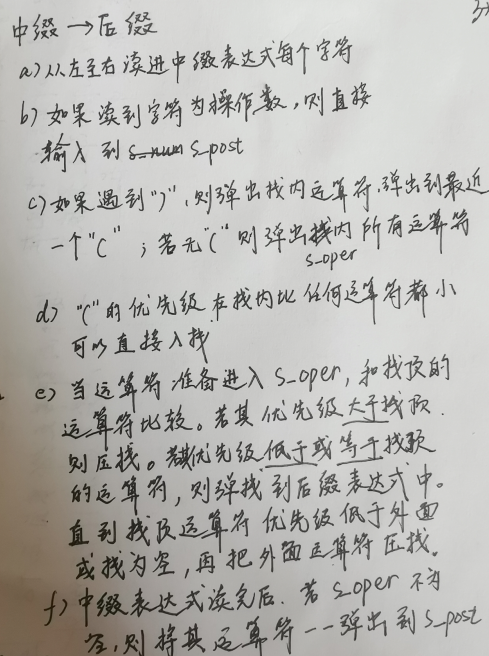 中缀→后缀
a)从左至右读进中缀表达式每个字符
b)如果读到字符为操作数,则直接
输入到 s_num s_post
c)如果遇到")",则弹出栈内运算符,弹出到最近
一个"(";若无"("则弹出栈内所有运算符
s_oper
d)"("的优先级在栈内比任何运算符都小
可以直接入栈
e)当运算符准备进入 s_oper,和栈顶的
运算符比较。若其优先级大于栈顶.
则压栈。若其优先级低于或等于栈顶
的运算符,则弹栈到后缀表达式中。
直到栈顶运算符优先级低于外面
或栈为空,再把外面运算符压栈。
f)中缀表达式读完后.若 s_oper 不为
空,则将其运算符一一弹出到 s_post